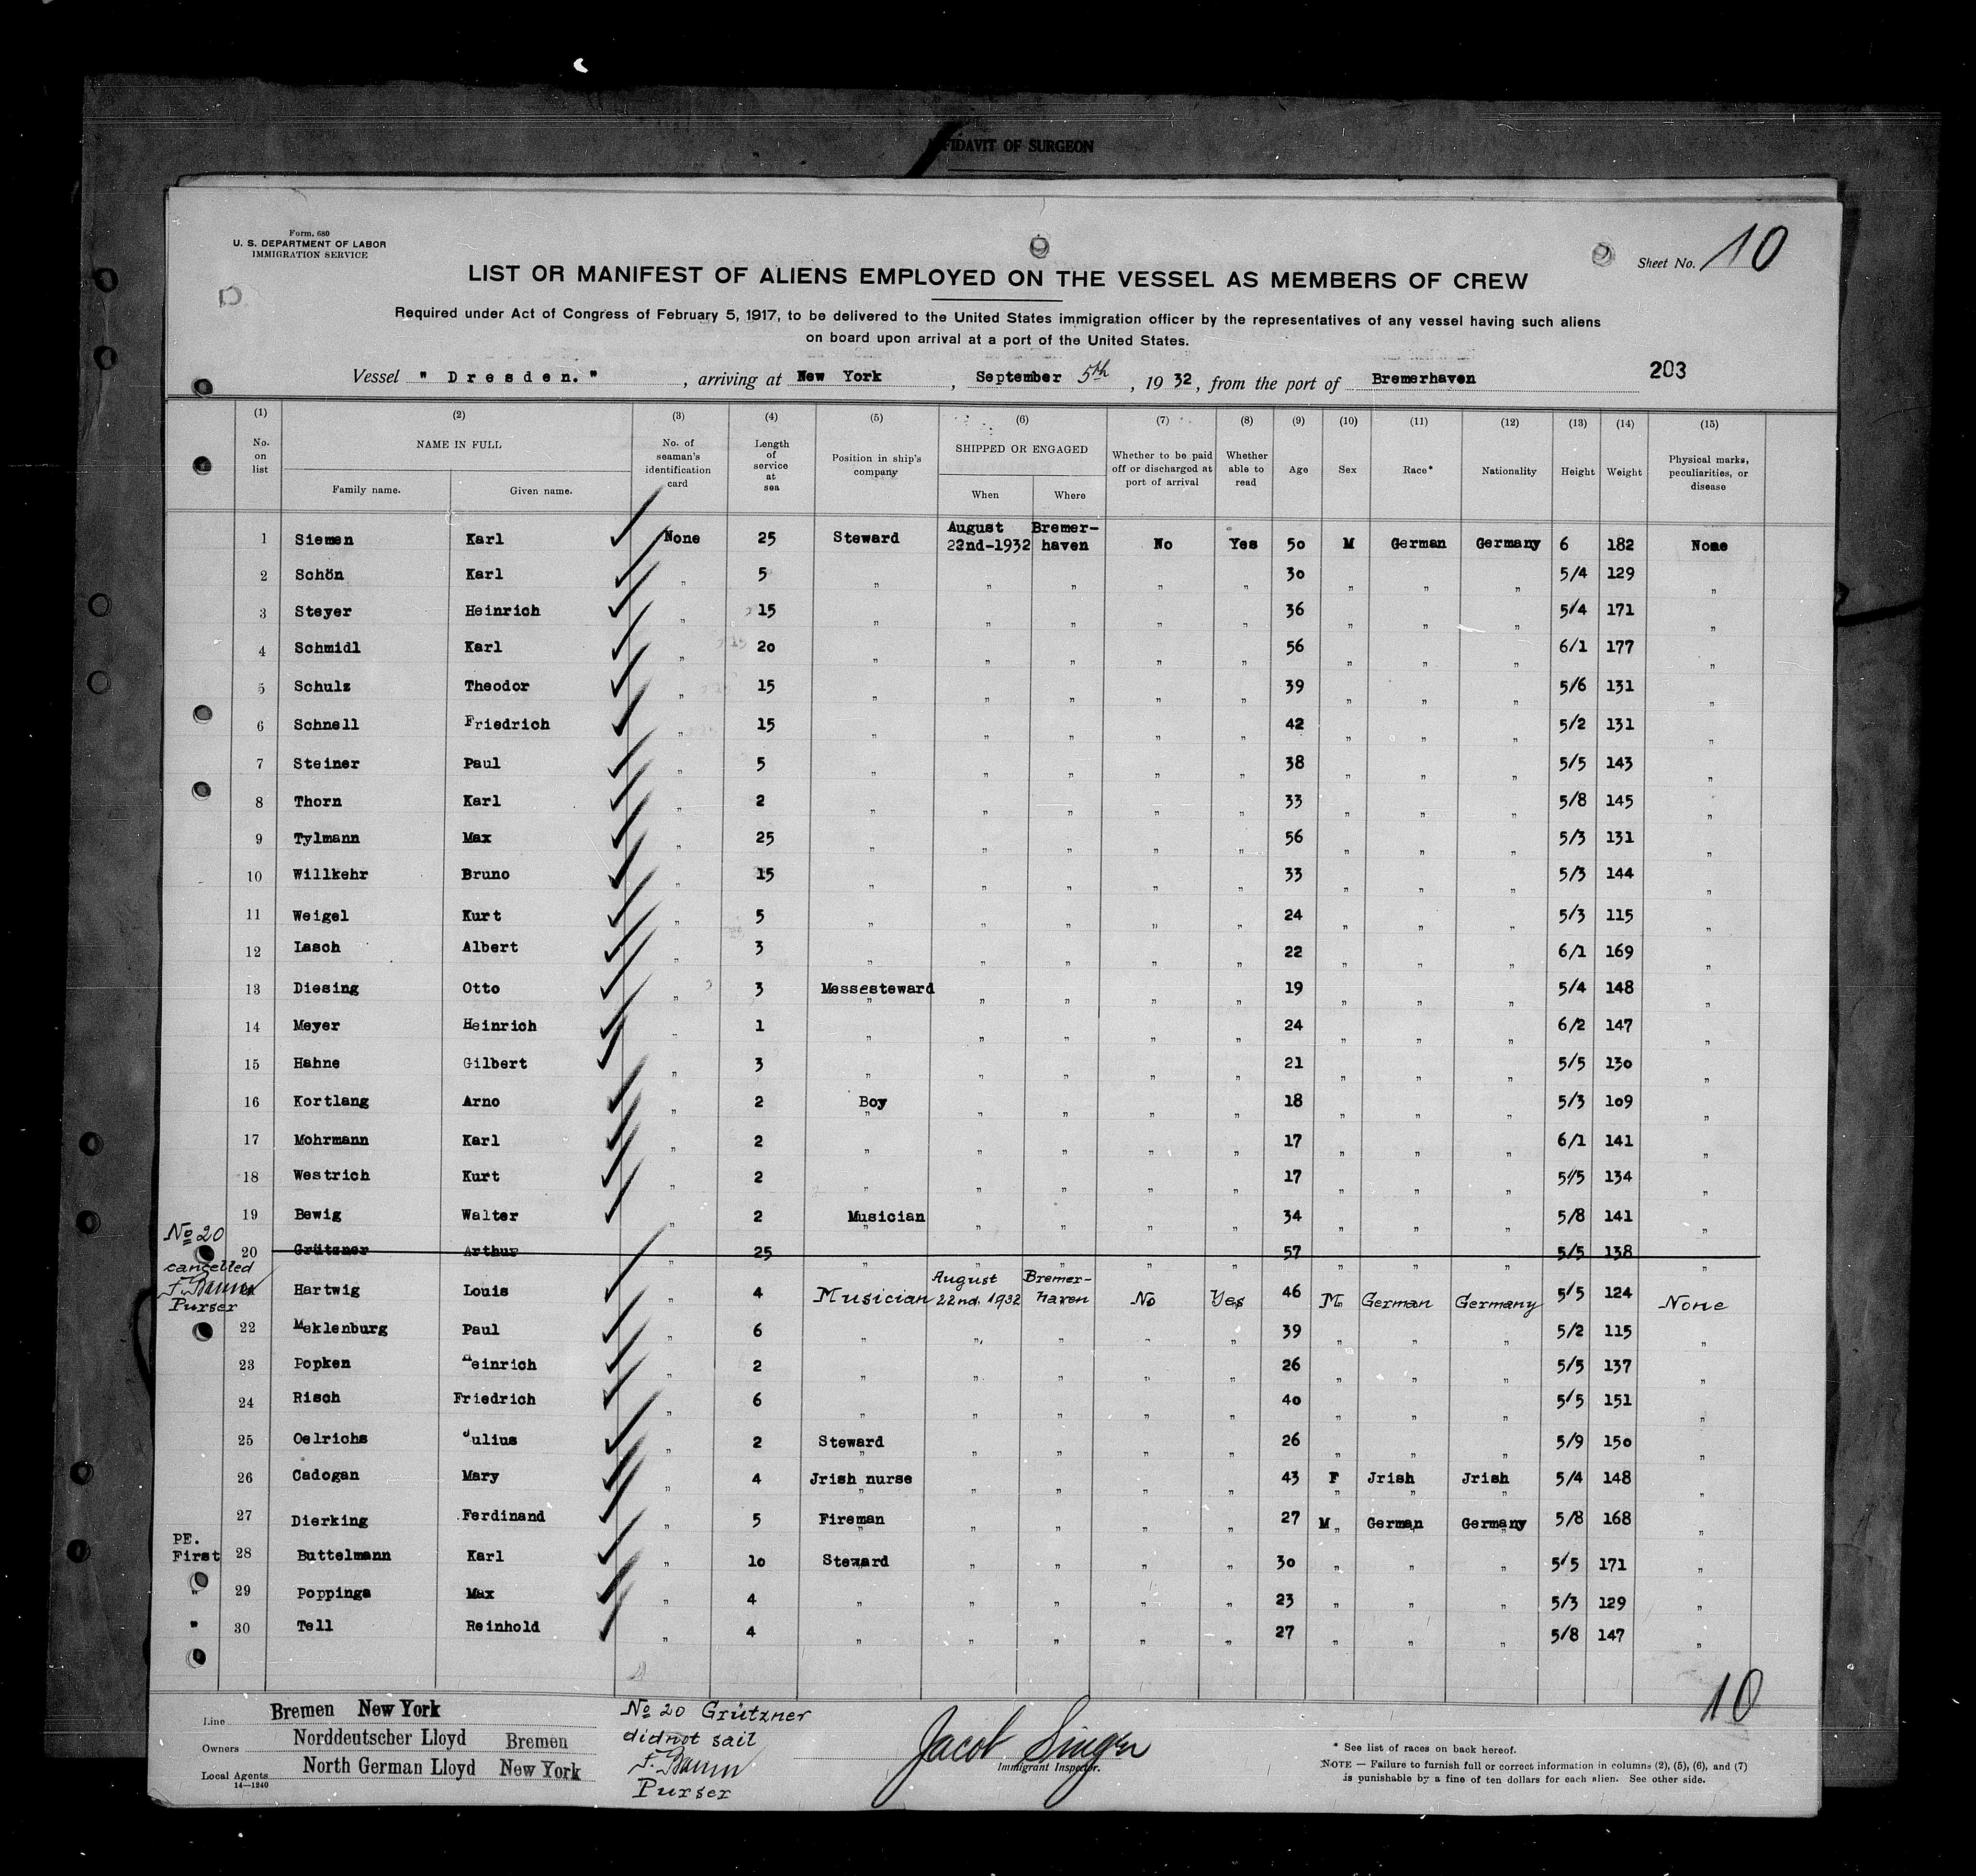 AFFIDAVIT OF SURGEON
Form. 680
U. S. DEPARTMENT OF LABOR
IMMIGRATION SERVICE
Sheet No. 10
LIST OR MANIFEST OF ALIENS EMPLOYED ON THE VESSEL AS MEMBERS OF CREW
Required under Act of Congress of February 5, 1917, to be delivered to the United States immigration officer by the representatives of any vessel having such aliens
on board upon arrival at a port of the United States.
Vessel " Dresden. ", arriving at New York, September 5th, 19 32, from the port of Bremerhaven 203
(1) (2) (3) (4) (5) (6) (7) (8) (9) (10) (11) (12) (13) (14) (15)
No. on list NAME IN FULL Family name. Given name. No. of seaman's identification card Length of service at sea Position in ship's company SHIPPED OR ENGAGED When Where Whether to be paid off or discharged at port of arrival Whether able to read Age Sex Race* Nationality Height Weight Physical marks, peculiarities, or disease
1 Siemen Karl None 25 Steward August 22nd-1932 Bremer-haven No Yes 50 M German Germany 6 182 None
2 Schön Karl " 5 " " " " " 30 " " " 5/4 129 "
3 Steyer Heinrich " 15 " " " " " 36 " " " 5/4 171 "
4 Schmidl Karl " 20 " " " " " 56 " " " 6/1 177 "
5 Schulz Theodor " 15 " " " " " 39 " " " 5/6 131 "
6 Schnell Friedrich " 15 " " " " " 42 " " " 5/2 131 "
7 Steiner Paul " 5 " " " " " 38 " " " 5/5 143 "
8 Thorn Karl " 2 " " " " " 33 " " " 5/8 145 "
9 Tylmann Max " 25 " " " " " 56 " " " 5/3 131 "
10 Willkehr Bruno " 15 " " " " " 33 " " " 5/3 144 "
11 Weigel Kurt " 5 " " " " " 24 " " " 5/3 115 "
12 Lasch Albert " 3 " " " " " 22 " " " 6/1 169 "
13 Diesing Otto " 3 Messesteward " " " " 19 " " " 5/4 148 "
14 Meyer Heinrich " 1 " " " " " 24 " " " 6/2 147 "
15 Hahne Gilbert " 3 " " " " " 21 " " " 5/5 130 "
16 Kortlang Arno " 2 Boy " " " " 18 " " " 5/3 109 "
17 Mohrmann Karl " 2 " " " " " 17 " " " 6/1 141 "
18 Westrich Kurt " 2 " " " " " 17 " " " 5/5 134 "
19 Bewig Walter " 2 Musician " " " " 34 " " " 5/8 141 "
No 20 cancelled
20 Grützner Arthur " 25 " " " " " 57 " " " 5/5 138 "
Purser
Hartwig Louis " 4 Musician August 22nd, 1932 Bremer-haven No Yes 46 M German Germany 5/5 124 None
22 Meklenburg Paul " 6 " " " " " 39 " " " 5/2 115 "
23 Popken Heinrich " 2 " " " " " 26 " " " 5/5 137 "
24 Risch Friedrich " 6 " " " " " 40 " " " 5/5 151 "
25 Oelrichs Julius " 2 Steward " " " " 26 " " " 5/9 150 "
26 Cadogan Mary " 4 Jrish nurse " " " " 43 F Jrish Jrish 5/4 148 "
27 Dierking Ferdinand " 5 Fireman " " " " 27 M German Germany 5/8 168 "
PE. First 28 Buttelmann Karl " 10 Steward " " " " 30 " " " 5/5 171 "
" 29 Poppinga Max " 4 " " " " " 23 " " " 5/3 129 "
" 30 Tell Reinhold " 4 " " " " " 27 " " " 5/8 147 "
10
Line Bremen New York
Owners Norddeutscher Lloyd Bremen
Local Agents North German Lloyd New York
14—1240
No 20 Grützner
did not sail
Purser
Jacob Singer
Immigrant Inspector.
* See list of races on back hereof.
NOTE — Failure to furnish full or correct information in columns (2), (5), (6), and (7)
is punishable by a fine of ten dollars for each alien. See other side.